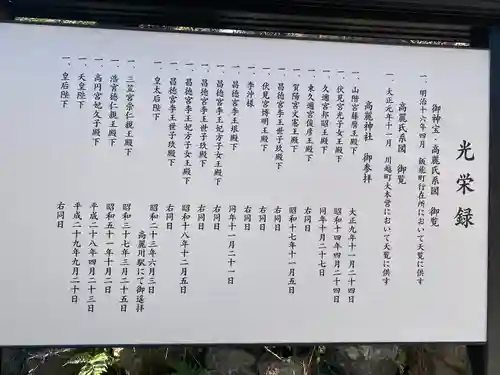 光栄録
御神宝・高麗氏系図 御覧
一、明治十六年四月 飯能町行在所において天覧に供す
高麗氏系図 御覧
一、大正元年十一月 川越町大本営において天覧に供す
高麗神社 御参拝
一、山階宮藤麿王殿下 大正九年十一月二十四日
一、伏見宮光子女王殿下 昭和十四年四月二十四日
一、久邇宮邦昭王殿下 同年十月二十七日
一、東久邇宮俊彦王殿下 右同日
一、賀陽宮文憲王殿下 昭和十七年十一月五日
一、昌徳宮李王世子玖殿下 右同日
一、伏見宮博明王殿下 右同日
一、李沖様 右同日
一、昌徳宮李王垠殿下 同年十一月二十一日
一、昌徳宮李王妃方子女王殿下 右同日
一、昌徳宮李王世子玖殿下 右同日
一、昌徳宮李王妃方子女王殿下 昭和十八年十二月五日
一、昌徳宮李王世子玖殿下 右同日
高麗川駅にて御送拝
一、皇太后陛下 昭和二十三年六月三日
一、三笠宮崇仁親王殿下 昭和三十七年三月二十五日
一、浩宮徳仁親王殿下 昭和五十一年十月二日
一、高円宮妃久子殿下 平成二十八年四月二十三日
一、天皇陛下 平成二十九年九月二十日
一、皇后陛下 右同日